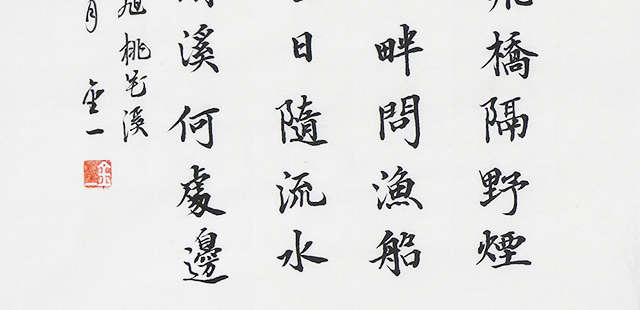 橋隔野煙
畔問漁船
日隨流水
溪何處邊
旭桃花溪
月
一